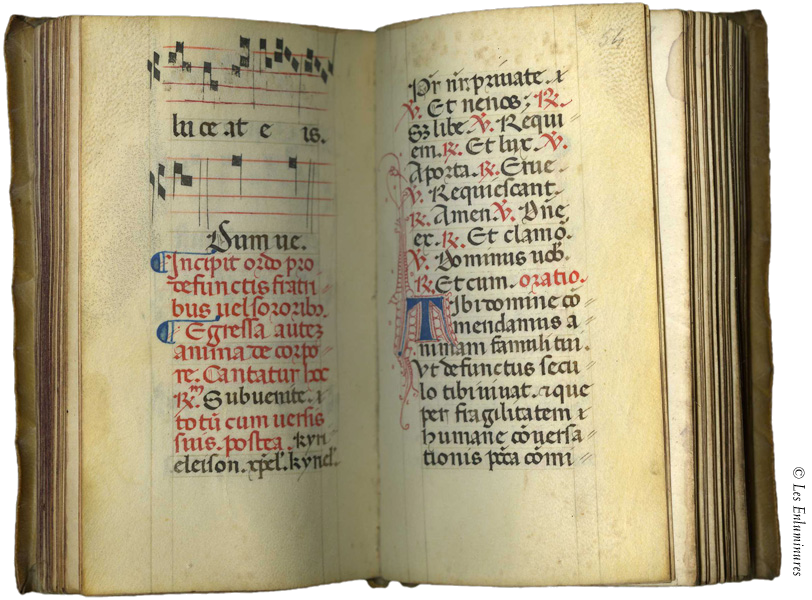 lu ce at e is.
Dum ue.
Incipit ordo pro
defunctis fratri
bus uel sororibꝰ.
Egressa autez
anima de corpo
re. Cantatur hec
℟m Subuenite. ⁊
totū cum uersis
suis. postea. kyri
eleison. xp̄el'. kyriel'.
54
Pr̄ nr̄. priuate. ⁊
℣. Et ne nos; ℟.
Sȝ libe. ℣. Requi
em. ℟. Et lux. ℣.
A porta. ℟. Erue
℣. Requiescant.
℟. Amen. ℣. Dn̄e
ex. ℟. Et clamo᷒.
℣. Dominus uob'.
℟. Et cum. oratio.
Tibi domine cō
mendamus a
nimam famuli tui.
Vt defunctus secu
lo tibi uiuat. ⁊ que
per fragilitatem ⁊
humane cōuersa
tionis pc̄ca cōmi
© Les Enluminures